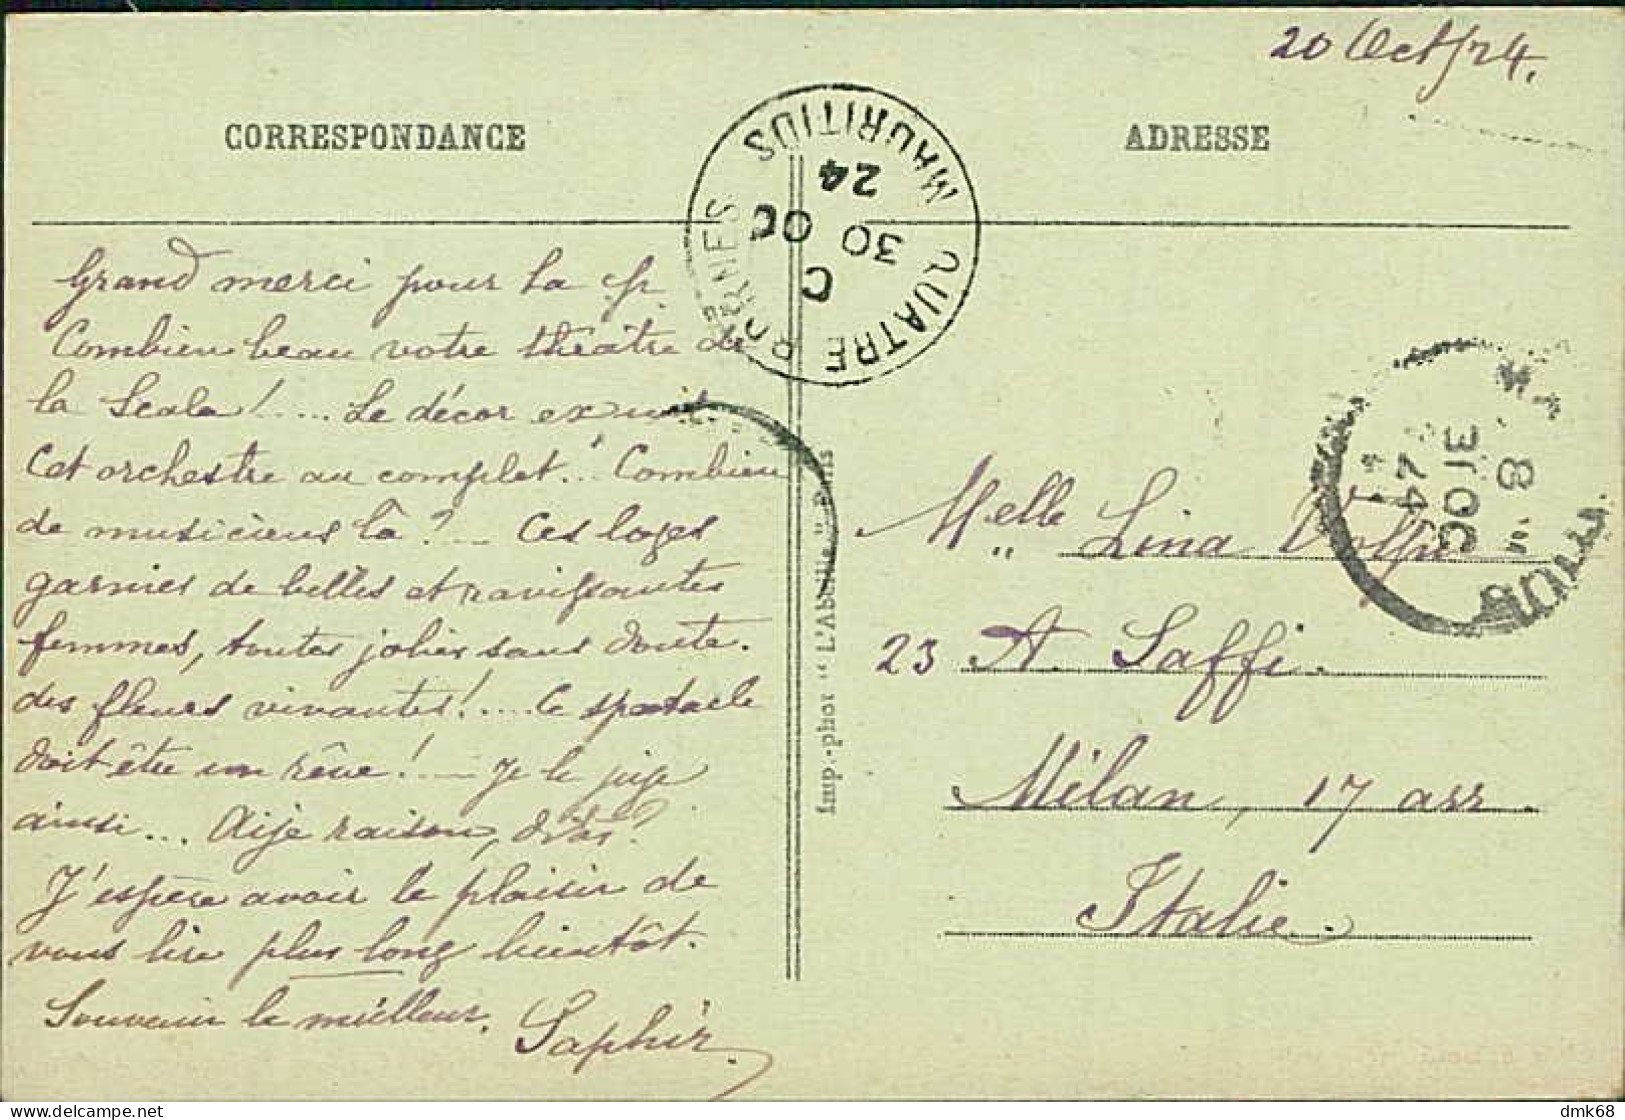 20 Oct/24.
CORRESPONDANCE
ADRESSE
QUATRE BORNES MAURITIUS
C
30 OC
24
Grand merci pour la cp
Combien beau votre théâtre de
la Scala!.... Le décor
Cet orchestre au complet... Combien
de musiciens là?.... Ces loges
garnies de belles et ravissantes
femmes, toutes jolies sans doute.
des fleurs vivantes!.... Ce spectacle
doit être un rêve!.... Je le juge
ainsi... Ai je raison, dites?
J'espère avoir le plaisir de
vous lire plus long bientôt.
Souvenir le meilleur.
Saphir.
Imp.-phot "L'Abeille" Paris
Melle Lina
23 A. Saffi.
Milan, 17 arr.
Italie.
dmk68